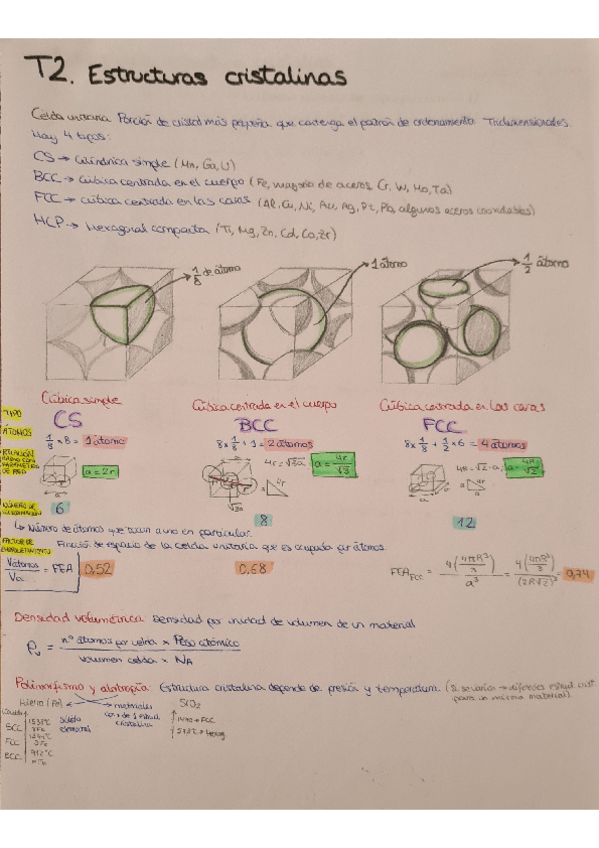 T2. Estructuras cristalinas
Celda unitaria. Porción de cristal más pequeña que contenga el patrón de ordenamiento. Tridimensionales.
Hay 4 tipos:
CS → Cilíndrica simple (Mn, Ga, U)
BCC → Cúbica centrada en el cuerpo (Fe, mayoría de aceros, Cr, W, Mo, Ta)
FCC → cúbica centrada en las caras (Al, Cu, Ni, Au, Ag, Pt, Pb, algunos aceros inoxidables)
HCP → Hexagonal compacta (Ti, Mg, Zn, Cd, Co, Zr)
1/8 de átomo
1 átomo
1/2 átomo
Cúbica simple Cúbica centrada en el cuerpo Cúbica centrada en las caras
TIPO CS BCC FCC
ÁTOMOS 1/8 x 8 = 1 átomo 8 x 1/8 + 1 = 2 átomos 8 x 1/8 + 1/2 x 6 = 4 átomos
RELACIÓN RADIO CON PARÁMETRO DE RED
a = 2r 4r = √3a, a = 4r/√3 4R = √2 · a; a = 4R/√2
NÚMERO DE COORDINACIÓN 6 8 12
↳ Número de átomos que tocan a uno en particular.
FACTOR DE EMPAQUETAMIENTO Fracción de espacio de la celda unitaria que es ocupada por átomos.
Vátomos/Vcu = FEA 0,52 0.68 FEA FCC = 4(4πR³/3)/a³ = 4(4πR³/3)/(2R√2)³ = 0,74
Densidad volumétrica. Densidad por unidad de volumen de un material
ρv = nº átomos por celda x Peso atómico / volumen celda x NA
Polimorfismo y alotropía. Estructura cristalina depende de presión y temperatura. (Si varían → diferentes estruct. crist. para un mismo material)
Hierro (Fe) materiales SiO2
BCC 1538ºC
FCC
BCC 912ºC